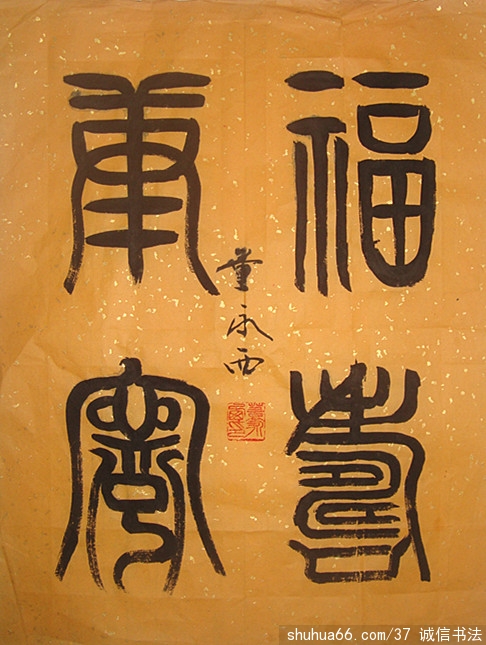 福壽
康寧
董永西
shuhua66.com/37 诚信书法